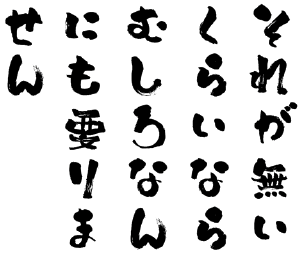 それが無い
くらいなら
むしろなん
にも要りま
せん